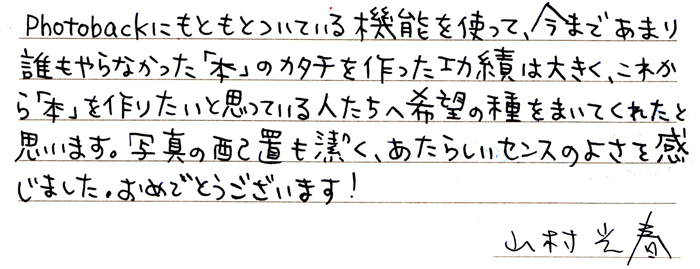 Photobackにもともとついている機能を使って、今まであまり
誰もやらなかった「本」のカタチを作った功績は大きく、これか
ら「本」を作りたいと思っている人たちへ希望の種をまいてくれたと
思います。写真の配置も潔く、あたらしいセンスのよさを感
じました。おめでとうございます！
山村光春